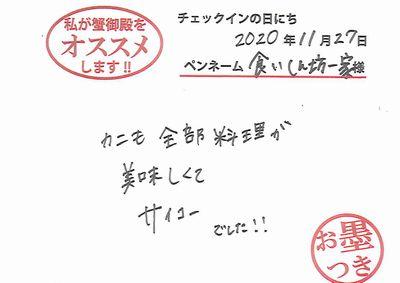 私が蟹御殿を
オススメ
します!!
チェックインの日にち
2020年11月27日
ペンネーム 食いしん坊一家様
カニも 全部料理が
美味しくて
サイコー でした!!
お墨
つき